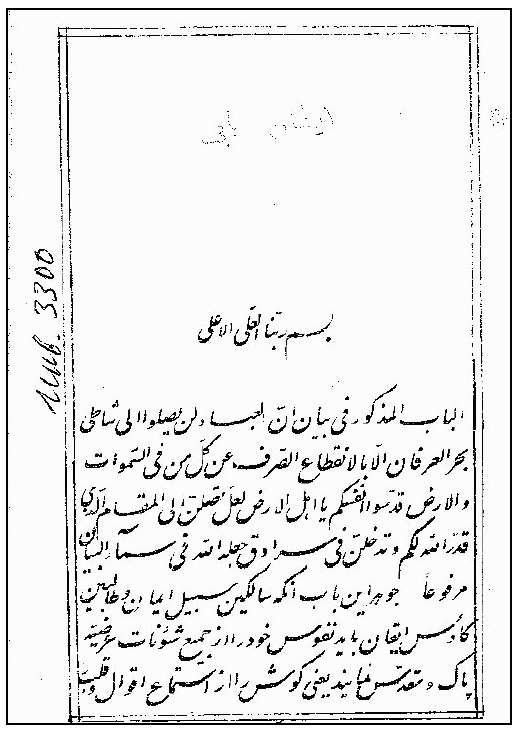 Инв. 3300
بسم ربّنا العلی الاعلی
الباب المذکور فی بیان انّ العباد لن یصلوا الی شاطی
بحر العرفان الّا بالانقطاع الصّرف عن کلّ من فی السّموات
والارض قدّسوا انفسکم یا اهل الارض لعلّ تصلنّ الی المقام الّذی
قدّر اللّه لکم و تدخلنّ فی سرادق جعله اللّه فی سمآء البیان
مرفوعاً جوهر این باب آنکه سالکین سبیل ایمان و طالبین
کأوس ایقان باید نفوس خود را از جمیع شئونات عرضیّه
پاک و مقدّس نمایند یعنی گوش را از استماع اقوال و قلب